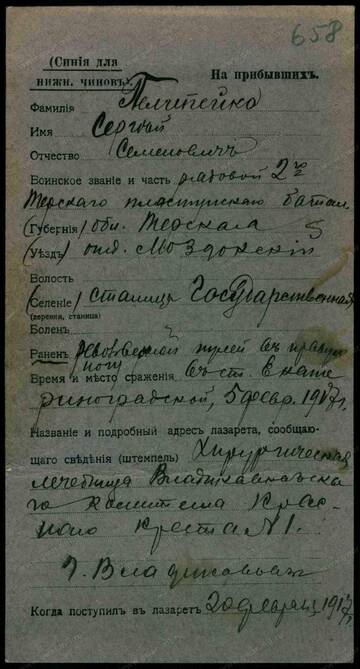 658
(Синія для
нижн. чиновъ).
На прибывшихъ.
Фамилія
Имя Сергѣй
Отчество Семеновичъ
Воинское званіе и часть рядовой 2го
Терскаго пластунскаго батал.
(Губернія) обл. Терская
(Уѣздъ) отд. Моздокскій
Волость
(Селеніе) станица Государственная
(деревня, станица)
Боленъ
Раненъ пулей въ правую
ногу
Время и мѣсто сраженія въ ст. Екате
риноградской, 5 февр. 1917 г.
Названіе и подробный адресъ лазарета, сообщаю-
щаго свѣдѣнія (штемпель) Хирургическая
лечебница Владикавказска
го Комитета Крас
наго Креста №1.
г. Владикавказъ
Когда поступилъ въ лазаретъ 20 февраля 1917 г.